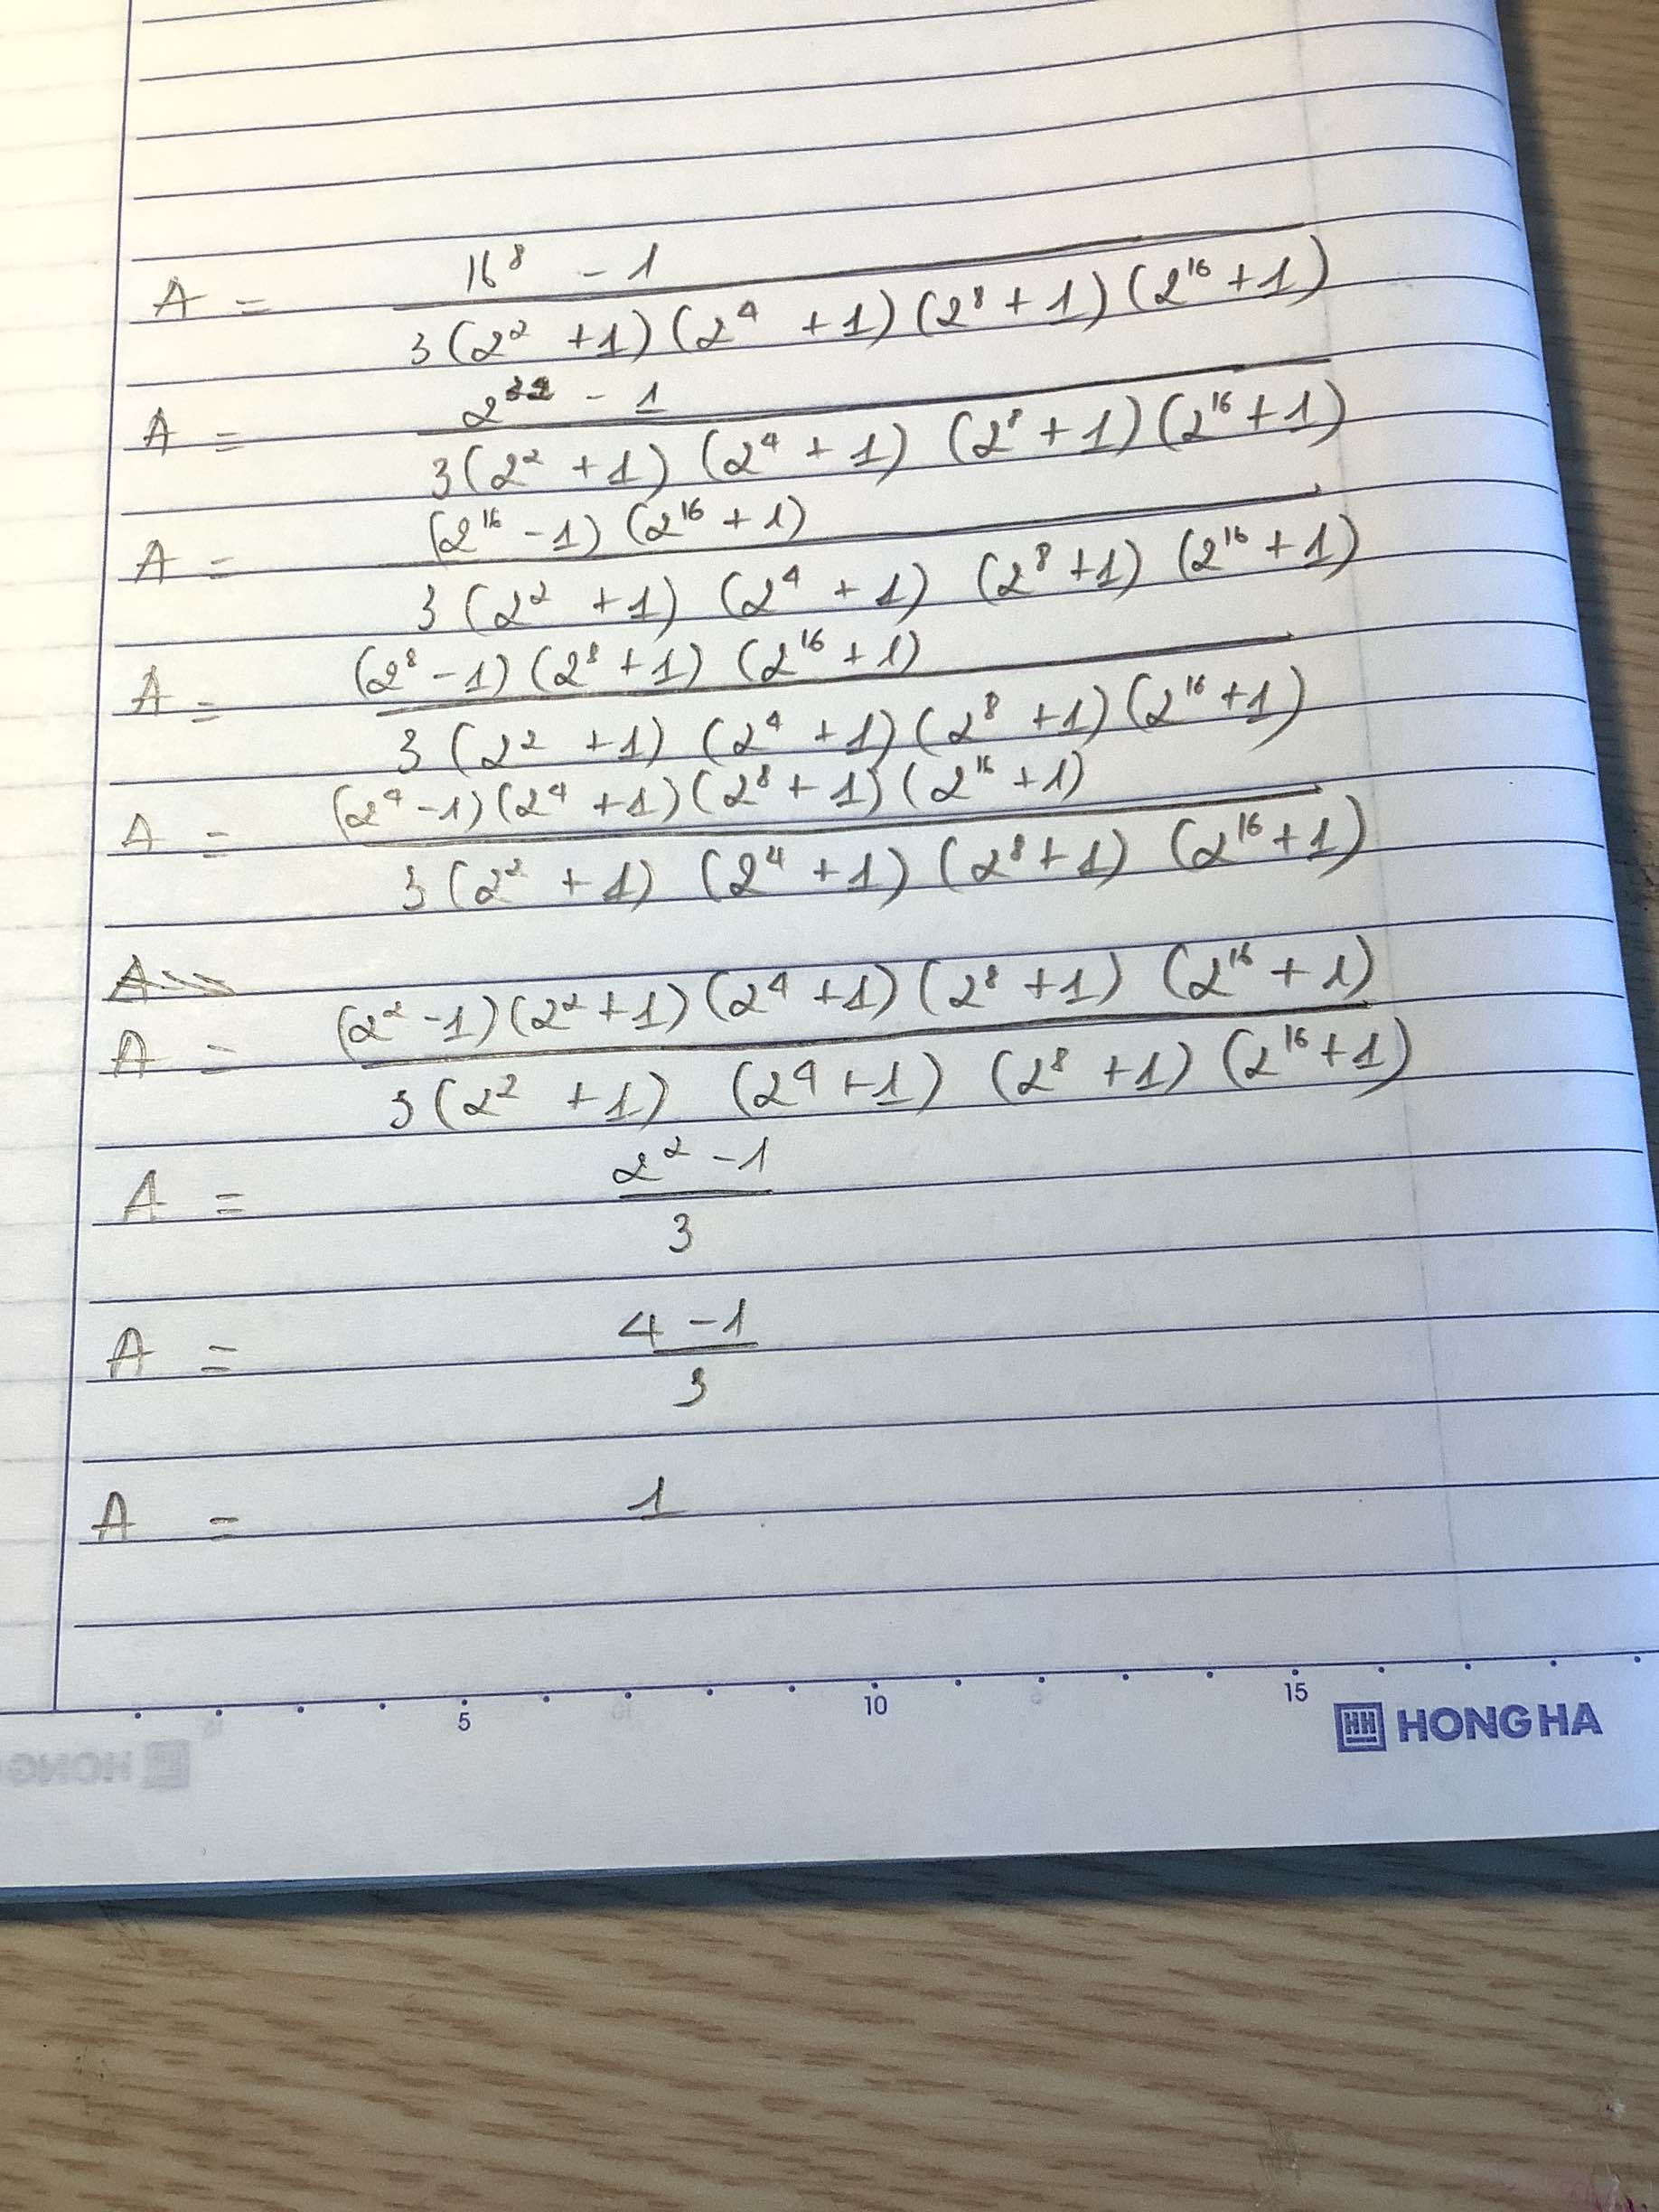 A = 16⁸ - 1
3(2² + 1)(2⁴ + 1)(2⁸ + 1)(2¹⁶ + 1)
A = 2³² - 1
3(2² + 1)(2⁴ + 1)(2⁸ + 1)(2¹⁶ + 1)
A = (2¹⁶ - 1)(2¹⁶ + 1)
3(2² + 1)(2⁴ + 1)(2⁸ + 1)(2¹⁶ + 1)
A = (2⁸ - 1)(2⁸ + 1)(2¹⁶ + 1)
3(2² + 1)(2⁴ + 1)(2⁸ + 1)(2¹⁶ + 1)
A = (2⁴ - 1)(2⁴ + 1)(2⁸ + 1)(2¹⁶ + 1)
3(2² + 1)(2⁴ + 1)(2⁸ + 1)(2¹⁶ + 1)
A
A = (2² - 1)(2² + 1)(2⁴ + 1)(2⁸ + 1)(2¹⁶ + 1)
3(2² + 1)(2⁴ + 1)(2⁸ + 1)(2¹⁶ + 1)
A = 2² - 1
3
A = 4 - 1
3
A = 1
5 10 15
HONG HA